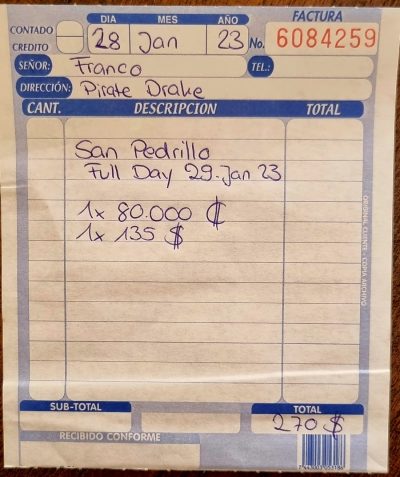 DIA MES AÑO FACTURA
CONTADO
CREDITO
28 Jan 23 No. 6084259
SEÑOR: Franco TEL.:
DIRECCIÓN: Pirate Drake
CANT. DESCRIPCION TOTAL
San Pedrillo
Full Day 29.Jan 23
1x 80.000 ₡
1x 135 $
ORIGINAL CLIENTE - COPIA ARCHIVO
SUB-TOTAL TOTAL
270 $
RECIBIDO CONFORME
7443003053186